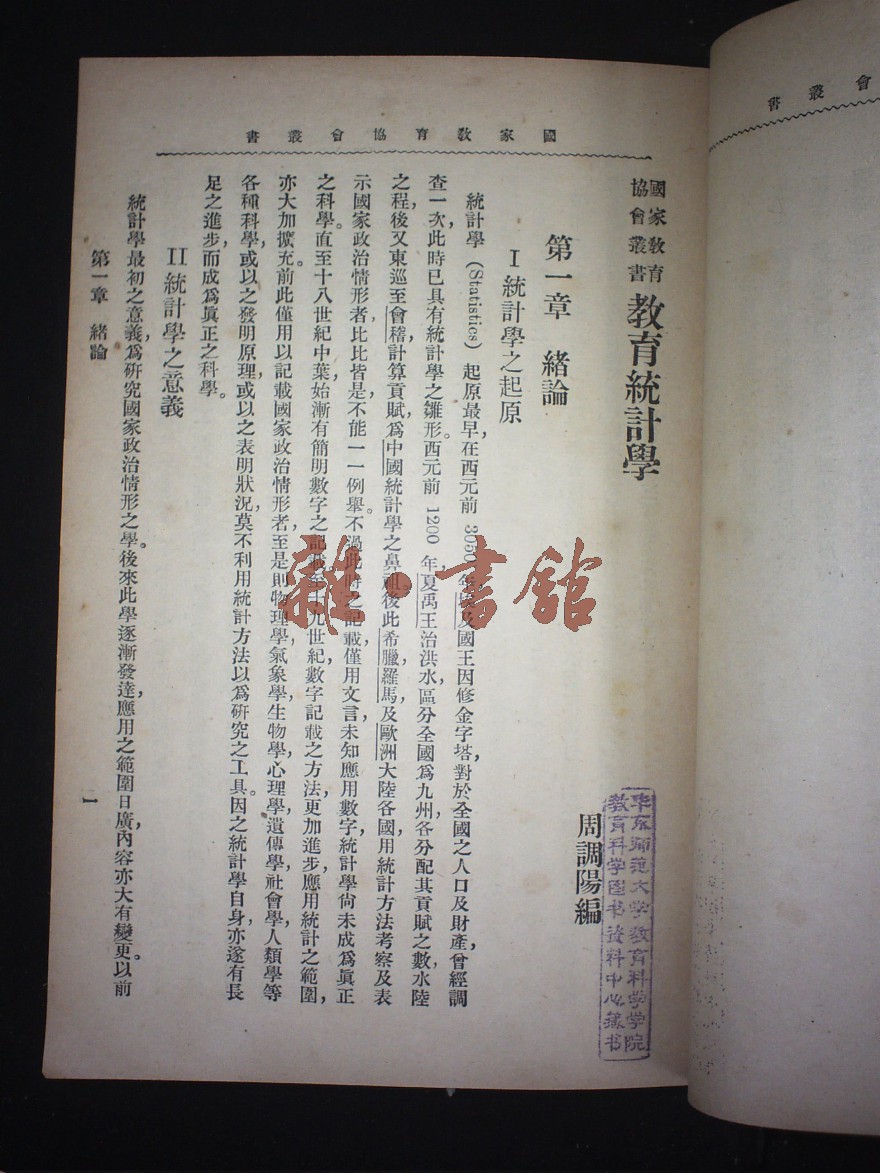 書叢會協育教家國
國家教育
協會叢書
教育統計學
周調陽編
第一章　緒論
I 統計學之起原
統計學 (Statistics) 起原最早，在西元前 3050 年，埃及國王因修金字塔，對於全國之人口及財產，曾經調
查一次，此時已具有統計學之雛形。西元前 1200 年，夏禹王治洪水，區分全國爲九州，各分配其貢賦之數，水陸
之程，後又東巡至會稽，計算貢賦，爲中國統計學之鼻祖，後此希臘羅馬，及歐洲大陸各國，用統計方法考察及表
示國家政治情形者，比比皆是，不能一一例舉。不過此時之記載，僅用文言，未知應用數字，統計學尙未成爲眞正
之科學。直至十八世紀中葉，始漸有簡明數字之記載，至十九世紀，數字記載之方法，更加進步，應用統計之範圍，
亦大加擴充。前此僅用以記載國家政治情形者，至是則物理學，氣象學，生物學，心理學，遺傳學，社會學，人類學等
各種科學，或以之發明原理，或以之表明狀況，莫不利用統計方法以爲硏究之工具。因之統計學自身，亦遂有長
足之進步，而成爲眞正之科學。
II 統計學之意義
統計學最初之意義，爲硏究國家政治情形之學。後來此學逐漸發達，應用之範圍日廣，內容亦大有變更。以前
第一章　緒論
一
华东师范大学教育科学学院
教育科学图书资料中心藏书
雜·書館
會叢書